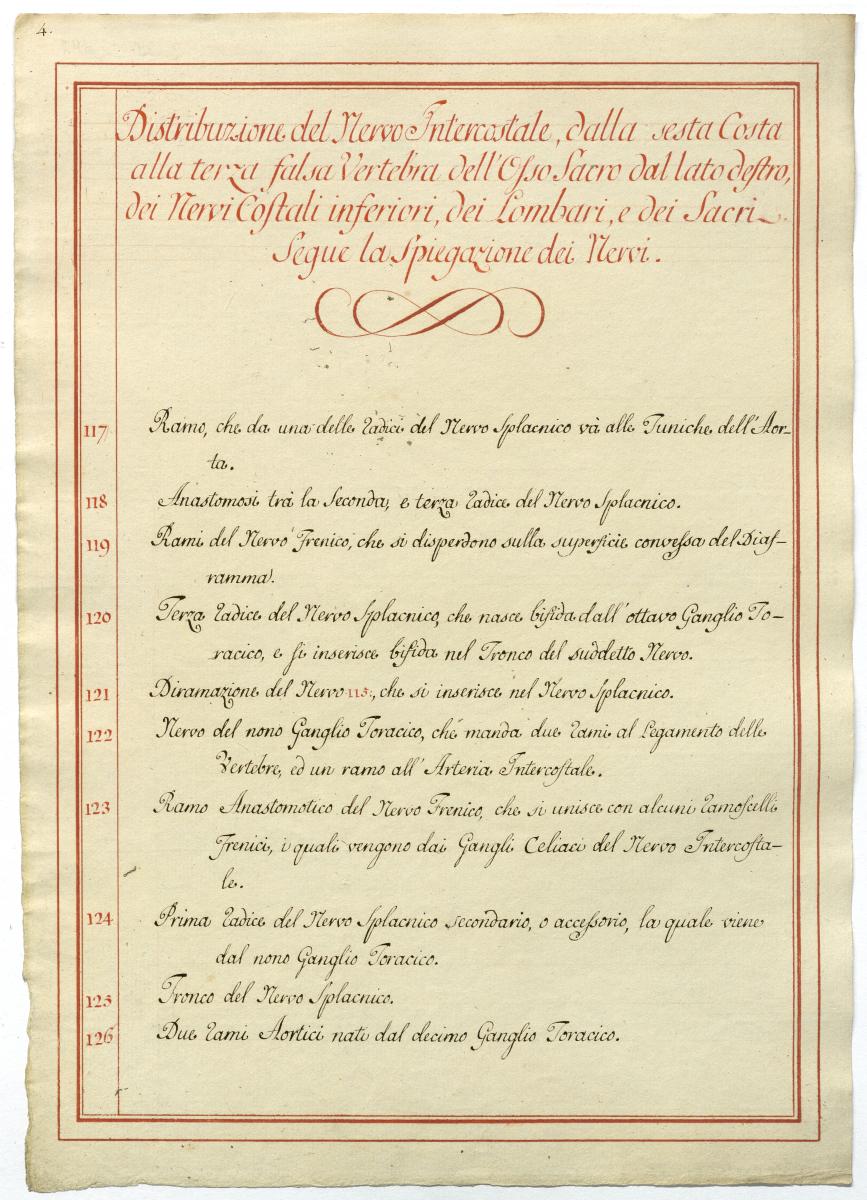 4.
Distribuzione del Nervo Intercostale, dalla sesta Costa
alla terza falsa Vertebra dell'Osso Sacro dal lato destro,
dei Nervi Costali inferiori, dei Lombari, e dei Sacri.
Segue la Spiegazione dei Nervi.
117 Ramo, che da una delle radici del Nervo Splacnico và alle Tuniche dell'Aor-
ta.
118 Anastomosi trà la Seconda, e terza radice del Nervo Splacnico.
119 Rami del Nervo Frenico, che si disperdono sulla superficie convessa del Diaf-
ramma.
120 Terza radice del Nervo Splacnico, che nasce bifida dall'ottavo Ganglio To-
racico, e si inserisce bifida nel Tronco del suddetto Nervo.
121 Diramazione del Nervo 115:, che si inserisce nel Nervo Splacnico.
122 Nervo del nono Ganglio Toracico, che manda due rami al Legamento delle
Vertebre, ed un ramo all'Arteria Intercostale.
123 Ramo Anastomotico del Nervo Frenico, che si unisce con alcuni ramoscelli
Frenici, i quali vengono dai Gangli Celiaci del Nervo Intercosta-
le.
124 Prima radice del Nervo Splacnico secondario, o accessorio, la quale viene
dal nono Ganglio Toracico.
125 Tronco del Nervo Splacnico.
126 Due rami Aortici nati dal decimo Ganglio Toracico.